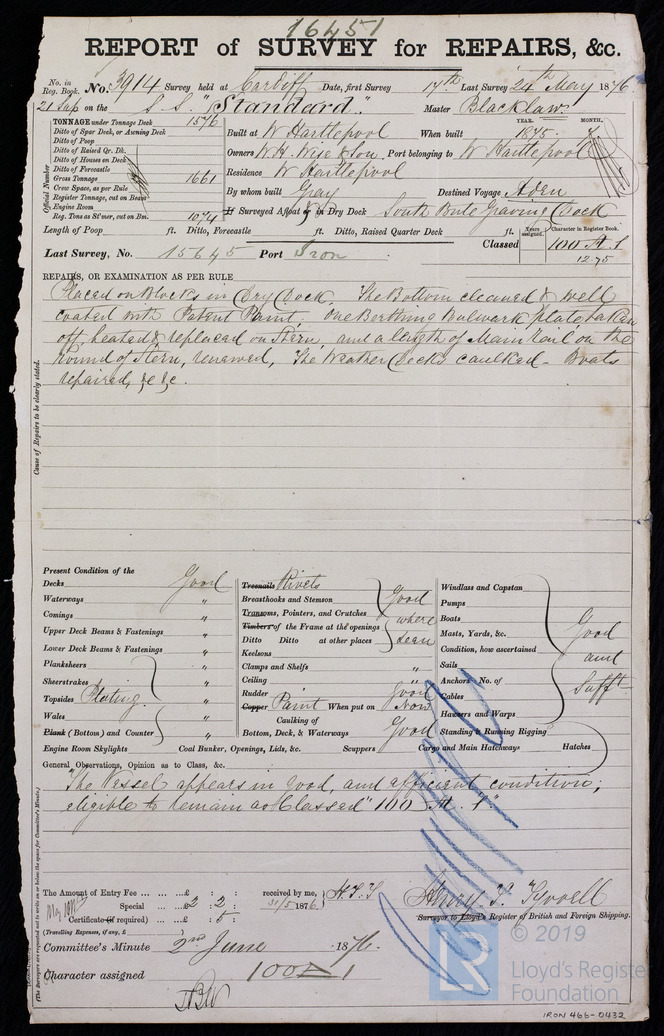 16451
REPORT of SURVEY for REPAIRS, &c.
No. in Reg. Book. No. 3914 Survey held at Cardiff Date, first Survey 17th Last Survey 24th May 1876
21 Sup on the S.S. "Standard" Master Blacklaw
TONNAGE under Tonnage Deck 1576
Ditto of Spar Deck, or Awning Deck
Ditto of Poop
Ditto of Raised Qr. Dk.
Ditto of Houses on Deck
Ditto of Forecastle
Gross Tonnage 1661
Crew Space, as per Rule
Register Tonnage, cut on Beam
Engine Room
Reg. Tons as St'mer, cut on Bm. 1074
Official Number
YEAR. MONTH.
Built at W Hartlepool When built 1875. 7
Owners W. H. Wise & Son, Port belonging to W Hartlepool
Residence W Hartlepool
By whom built Gray Destined Voyage Aden
If Surveyed Afloat or in Dry Dock South Bute Graving Dock
Length of Poop ft. Ditto, Forecastle ft. Ditto, Raised Quarter Deck ft.
Years assigned. Character in Register Book.
Last Survey, No. 15645 Port Iron Classed 100 A 1
12-75
REPAIRS, OR EXAMINATION AS PER RULE
Placed on Blocks in Dry Dock. The Bottom cleaned & well
coated with Patent Paint, One Berthing Bulwark plate taken
off, heated & replaced on Stern, and a length of Main rail on the
round of Stern, renewed, The Weather Decks caulked - Boats
repaired, &c &c.
Cause of Repairs to be clearly stated.
Present Condition of the
Decks Good
Waterways "
Comings "
Upper Deck Beams & Fastenings "
Lower Deck Beams & Fastenings "
Planksheers "
Sheerstrakes "
Topsides Plating "
Wales "
Plank (Bottoms) and Counter "
Treenails Rivets
Breasthooks and Stemson
Transoms, Pointers, and Crutches
Timbers of the Frame at the openings
Ditto Ditto at other places
Good where seen
Keelsons
Clamps and Shelfs "
Ceiling "
Rudder Good
Copper Paint When put on Now
Caulking of
Bottom, Deck, & Waterways Good
Windlass and Capstan
Pumps
Boats
Masts, Yards, &c.
Condition, how ascertained
Sails
Anchors - No. of
Cables
Hawsers and Warps
Standing & Running Rigging
Good and Sufft
Engine Room Skylights Coal Bunker, Openings, Lids, &c. Scuppers Cargo and Main Hatchways Hatches
General Observations, Opinion as to Class, &c.
"The Vessel appears in good, and efficient condition;
eligible to remain as Classed "100 A. 1".
(The Surveyors are requested not to write on or below the space for Committee's Minute.)
The Amount of Entry Fee ... ... ...£ : : received by me, H.F.T
Special ... ...£ 2 : 2 : 31/5 1876
Certificate (if required) ...£ : 5 :
(Travelling Expenses, if any, £ )
Surveyor to Lloyd's Register of British and Foreign Shipping.
Committee's Minute 2nd June 1876.
Character assigned 100 A 1
© 2019
LR
Lloyd's Register
Foundation
IRON 466-0432